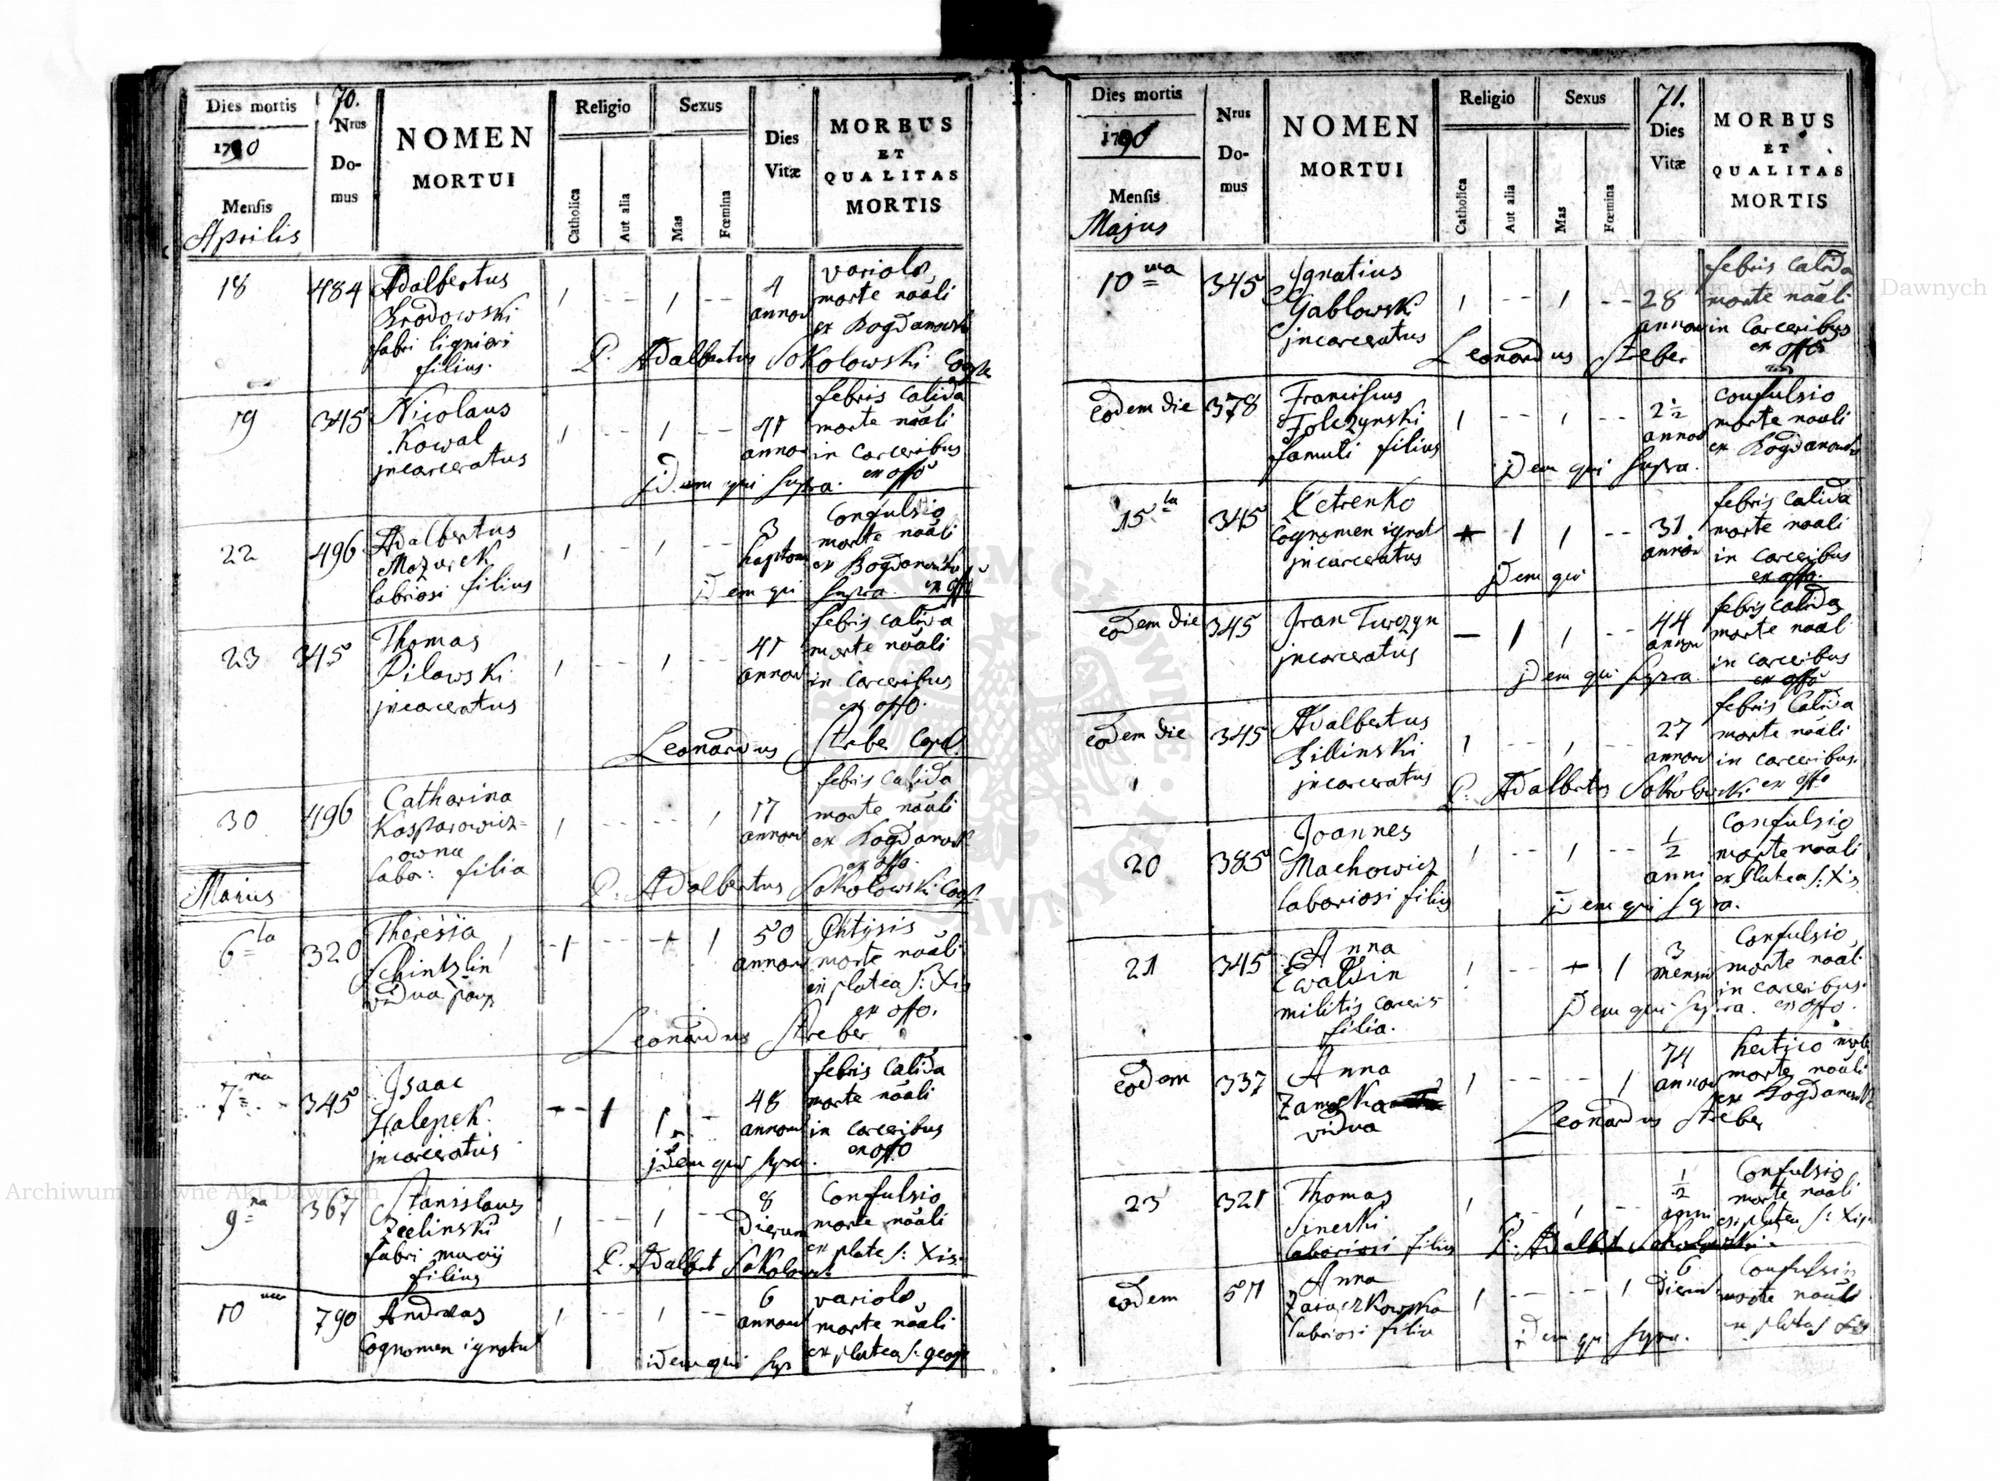 70.
Dies mortis
1790
Mensis
Aprilis
Nrus
Do-
mus
NOMEN
MORTUI
Religio
Catholica
Aut alia
Sexus
Mas
Fœmina
Dies
Vitæ
MORBUS
ET
QUALITAS
MORTIS
18 484 Adalbertus
Brodowski
fabri ligniari
filius.
1 -- 1 --
4
annor
variolis
morte nāāli
ex Bogdanowsk
P. Adalbertus Sokolowski Coop
19 345 Nicolaus
Kowal
jncarceratus
1 -- 1 --
41
annor
febris calida
morte nāāli
in carceribus
ex offo
jdem qui supra.
22 496 Adalbertus
Mazurek
laboriosi filius
1 -- 1 --
3
confulsio
morte nāāli
ex Bogdanowsk
ex offo
jdem qui supra
23 345 Thomas
Pilawski
jncarceratus
1 -- 1 --
41
annor
febris calida
morte nāāli
in carceribus
ex offo.
Leonardus Streber Coop.
30 496 Catharina
Kasparowicz=
owna
labor: filia
1 -- -- 1
17
annor
febris calida
morte nāāli
ex Bogdanowsk
ex offo.
P. Adalbertus Sokolowski Coop.
Maius
6ta 320 Theresija
Schintzlin
vidua paup
50
annor
Phtysis
morte nāāli
ex platea S: Xis
ex offo.
Leonardus Streber
7ma 345 Jsaac
Halepek.
jncarceratus
48
annor
febris calida
morte nāāli
in carceribus
ex offo
jdem qui supra.
9na 367 Stanislaus
Zielinski
fabri murarij
filius
1 -- 1 --
8
dierum
confulsio
morte nāāli
ex platea S: Xis.
P. Adalbert Sokolowsk
10ma 790 Andreas
Cognomen ignotum
1 -- 1 --
6
annor
variolis
morte nāāli
ex platea S: Georg
idem qui supr
71.
Dies mortis
1790
Mensis
Majus
Nrus
Do-
mus
NOMEN
MORTUI
Religio
Catholica
Aut alia
Sexus
Mas
Fœmina
Dies
Vitæ
MORBUS
ET
QUALITAS
MORTIS
10ma 345 Jgnatius
Gablowski
jncarceratus
1 -- 1 --
28
annor
febris calida
morte nāāli
in carceribus
ex offo
Leonardus Streber
eodem die 378 Franciscus
Folczynski
famuli filius
1 -- 1 --
2½
annor
confulsio
morte nāāli
ex Bogdanowsk
jdem qui supra.
15ta 345 Petrenko
Cognomen ignot
jncarceratus
1 1 --
31
annor
febris calida
morte nāāli
in carceribus
ex offo.
jdem qui
eodem die 345 Jwan Turczyn
jncarceratus
— 1 1 --
44
annor
febris calida
morte nāāli
in carceribus
ex offo
jdem qui supra.
eodem die 345 Adalbertus
Billinski
jncarceratus
1 -- 1 --
27
annor
febris calida
morte nāāli
in carceribus.
ex offo
P. Adalbertus Sokolowski
20 385 Joannes
Machowicz
laboriosi filius
1 -- 1 --
½
anni
confulsio
morte nāāli
ex platea S: Xis
jdem qui supra.
21 345 Anna
Ewaldin
militis carcer
filia.
3
mensiu
confulsio
morte nāāli
in carceribus.
ex offo.
jdem qui supra.
eodem 337 Anna
Zamoska
vidua
1 -- -- 1
74
annor
hectico morbo
morte nāāli
ex Bogdanowsk
Leonardus Streber
23 321 Thomas
Sineski
laboriosi filius
1 -- 1 --
½
anni
confulsio
morte nāāli
ex platea S: Xis
P. Adalbert Sokolowski.
eodem 571 Anna
Zarączkowska
laboriosi filia
1 -- -- 1
6
dierum
confulsio
morte nāāli
ex platea S
idem qui supra.
Archiwum Główne Akt Dawnych